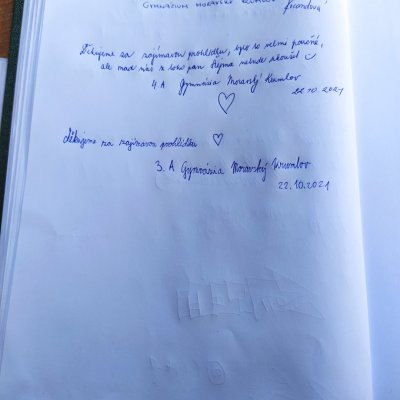 GYMNÁZIUM MORAVSKÝ KRUMLOV
Děkujeme za zajímavou prohlídku, bylo to velmi poučné,
ale snad nás z toho pan Šejma nebude zkoušet
4. A Gymnázia Moravský Krumlov
22.10.2021
Děkujeme za zajímavou prohlídku
3. A Gymnázia Moravský Krumlov
22.10.2021